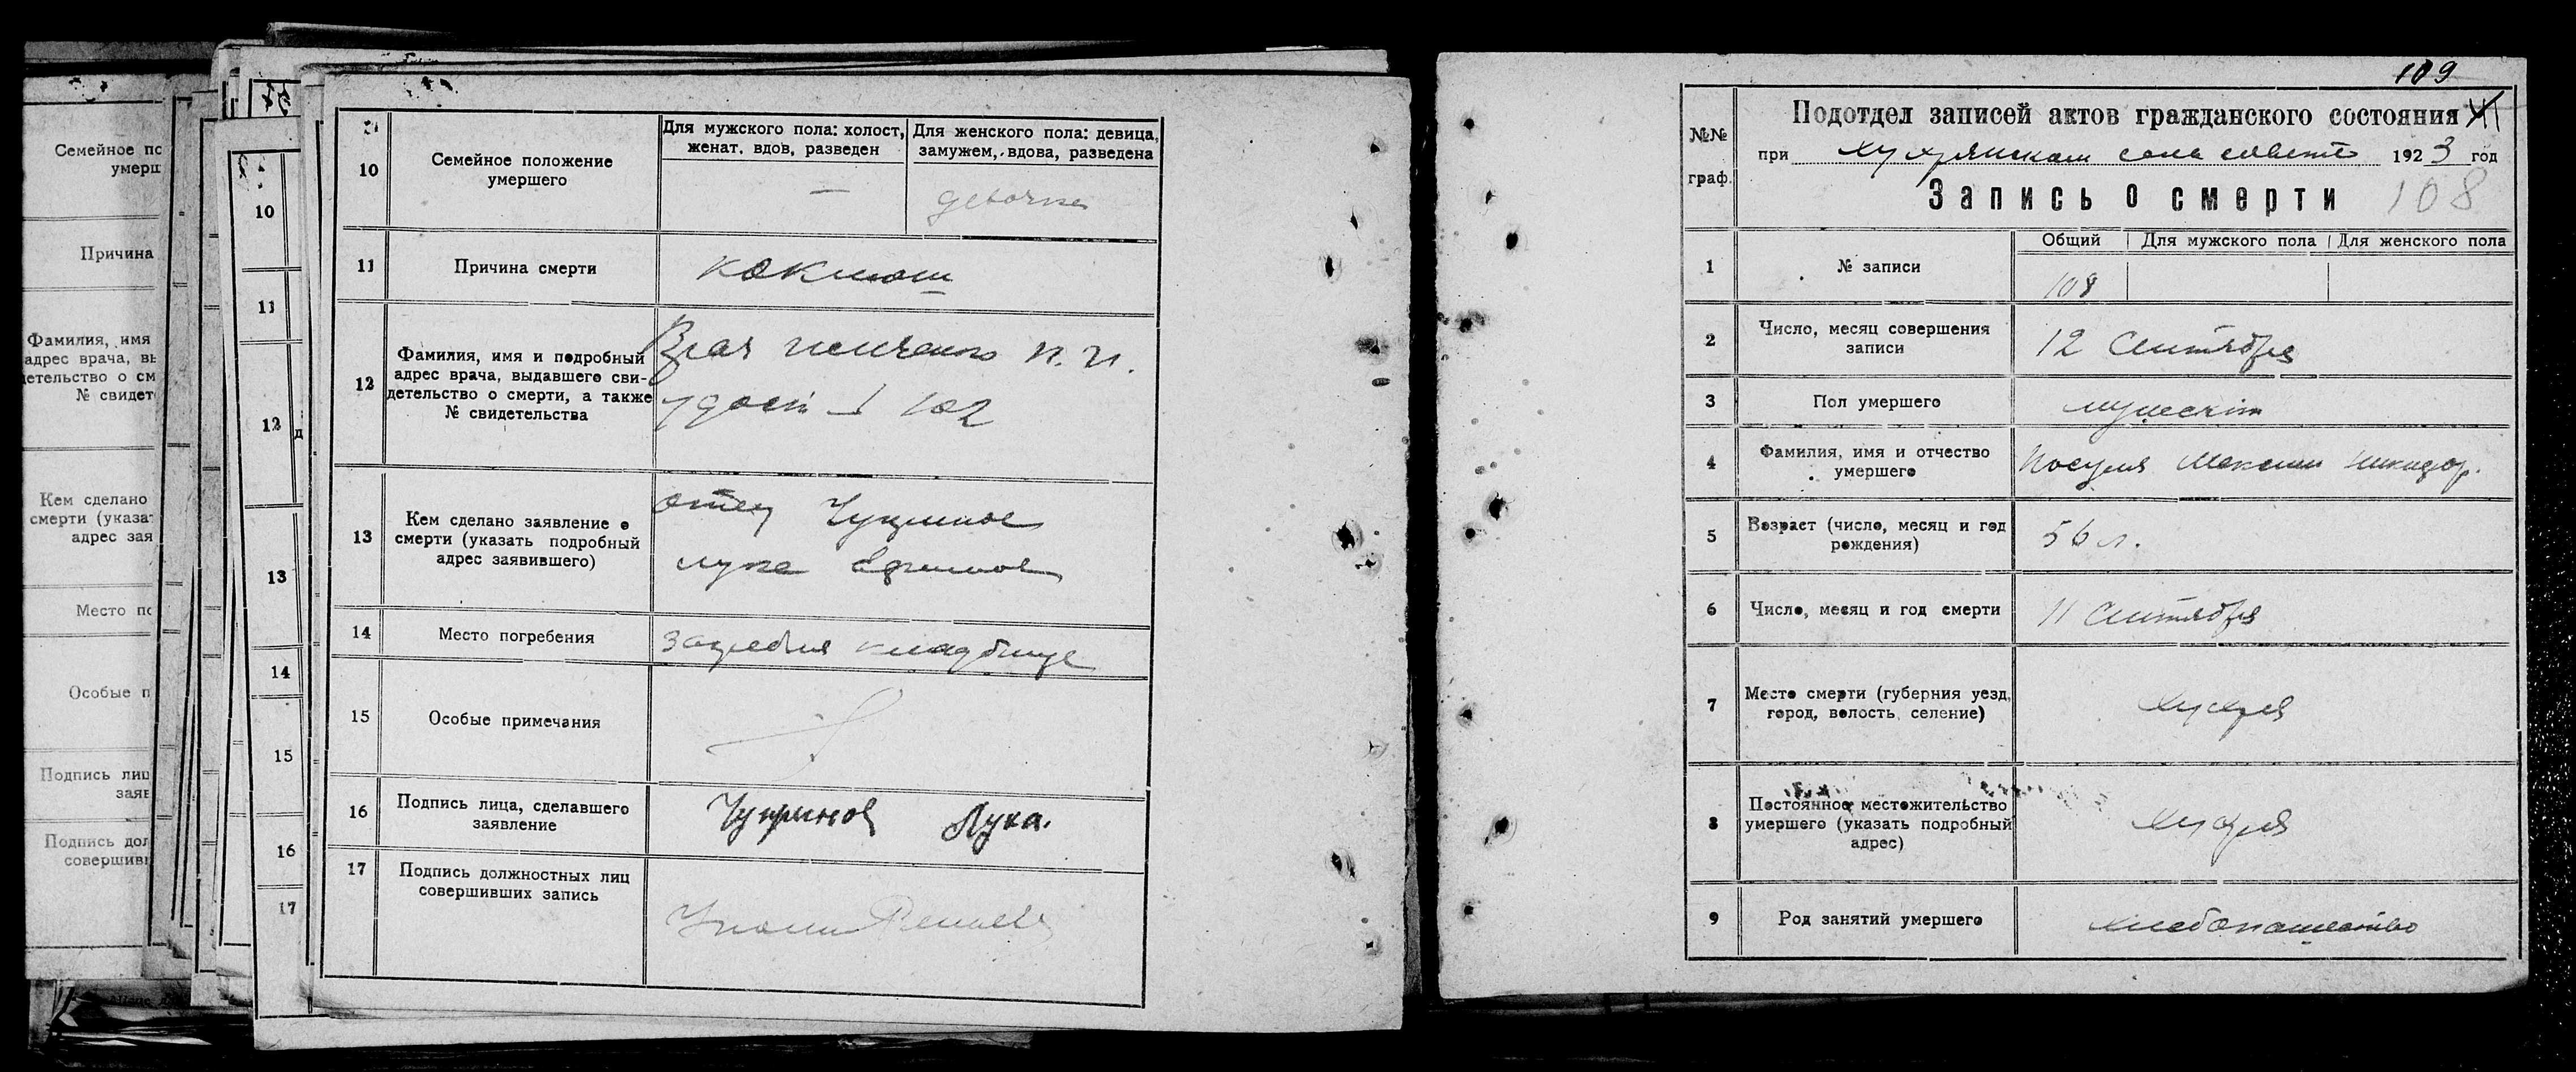 Семейное по
умерш
Причина
Фамилия, имя
адрес врача, вы
детельство о см
№ свидет
Кем сделано
смерти (указат
адрес зая
Место по
Особые п
Подпись лиц
заяв
Подпись дол
совершивш
10
11
12
д
13
14
15
16
17
10
Семейное положение
умершего
Для мужского пола: холост,
женат, вдов, разведен
Для женского пола: девица,
замужем, вдова, разведена
—
11
Причина смерти
коклюш
12
Фамилия, имя и подробный
адрес врача, выдавшего сви-
детельство о смерти, а также
№ свидетельства
Врач П. И.
102
13
Кем сделано заявление о
смерти (указать подробный
адрес заявившего)
отец Чупринов
лука Ефимов
14
Место погребения
кладбище
15
Особые примечания
16
Подпись лица, сделавшего
заявление
Чупринов Лука.
17
Подпись должностных лиц
совершивших запись
109
№№
граф.
Подотдел записей актов гражданского состояния
при Хухрянском сель совете 1923 год
Запись о смерти 108
1
№ записи
Общий
Для мужского пола
Для женского пола
108
2
Число, месяц совершения
записи
12 Сентября
3
Пол умершего
4
Фамилия, имя и отчество
умершего
Максим Никифор.
5
Возраст (число, месяц и год
рождения)
56 л.
6
Число, месяц и год смерти
11 Сентября
7
Место смерти (губерния уезд,
город, волость, селение)
Хухря
8
Постоянное местожительство
умершего (указать подробный
адрес)
Хухря
9
Род занятий умершего
хлебопашество